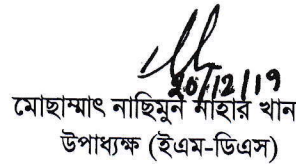 ২০/12/19
মোছাম্মাৎ নাছিমুন নাহার খান
উপাধ্যক্ষ (ইএম-ডিএস)